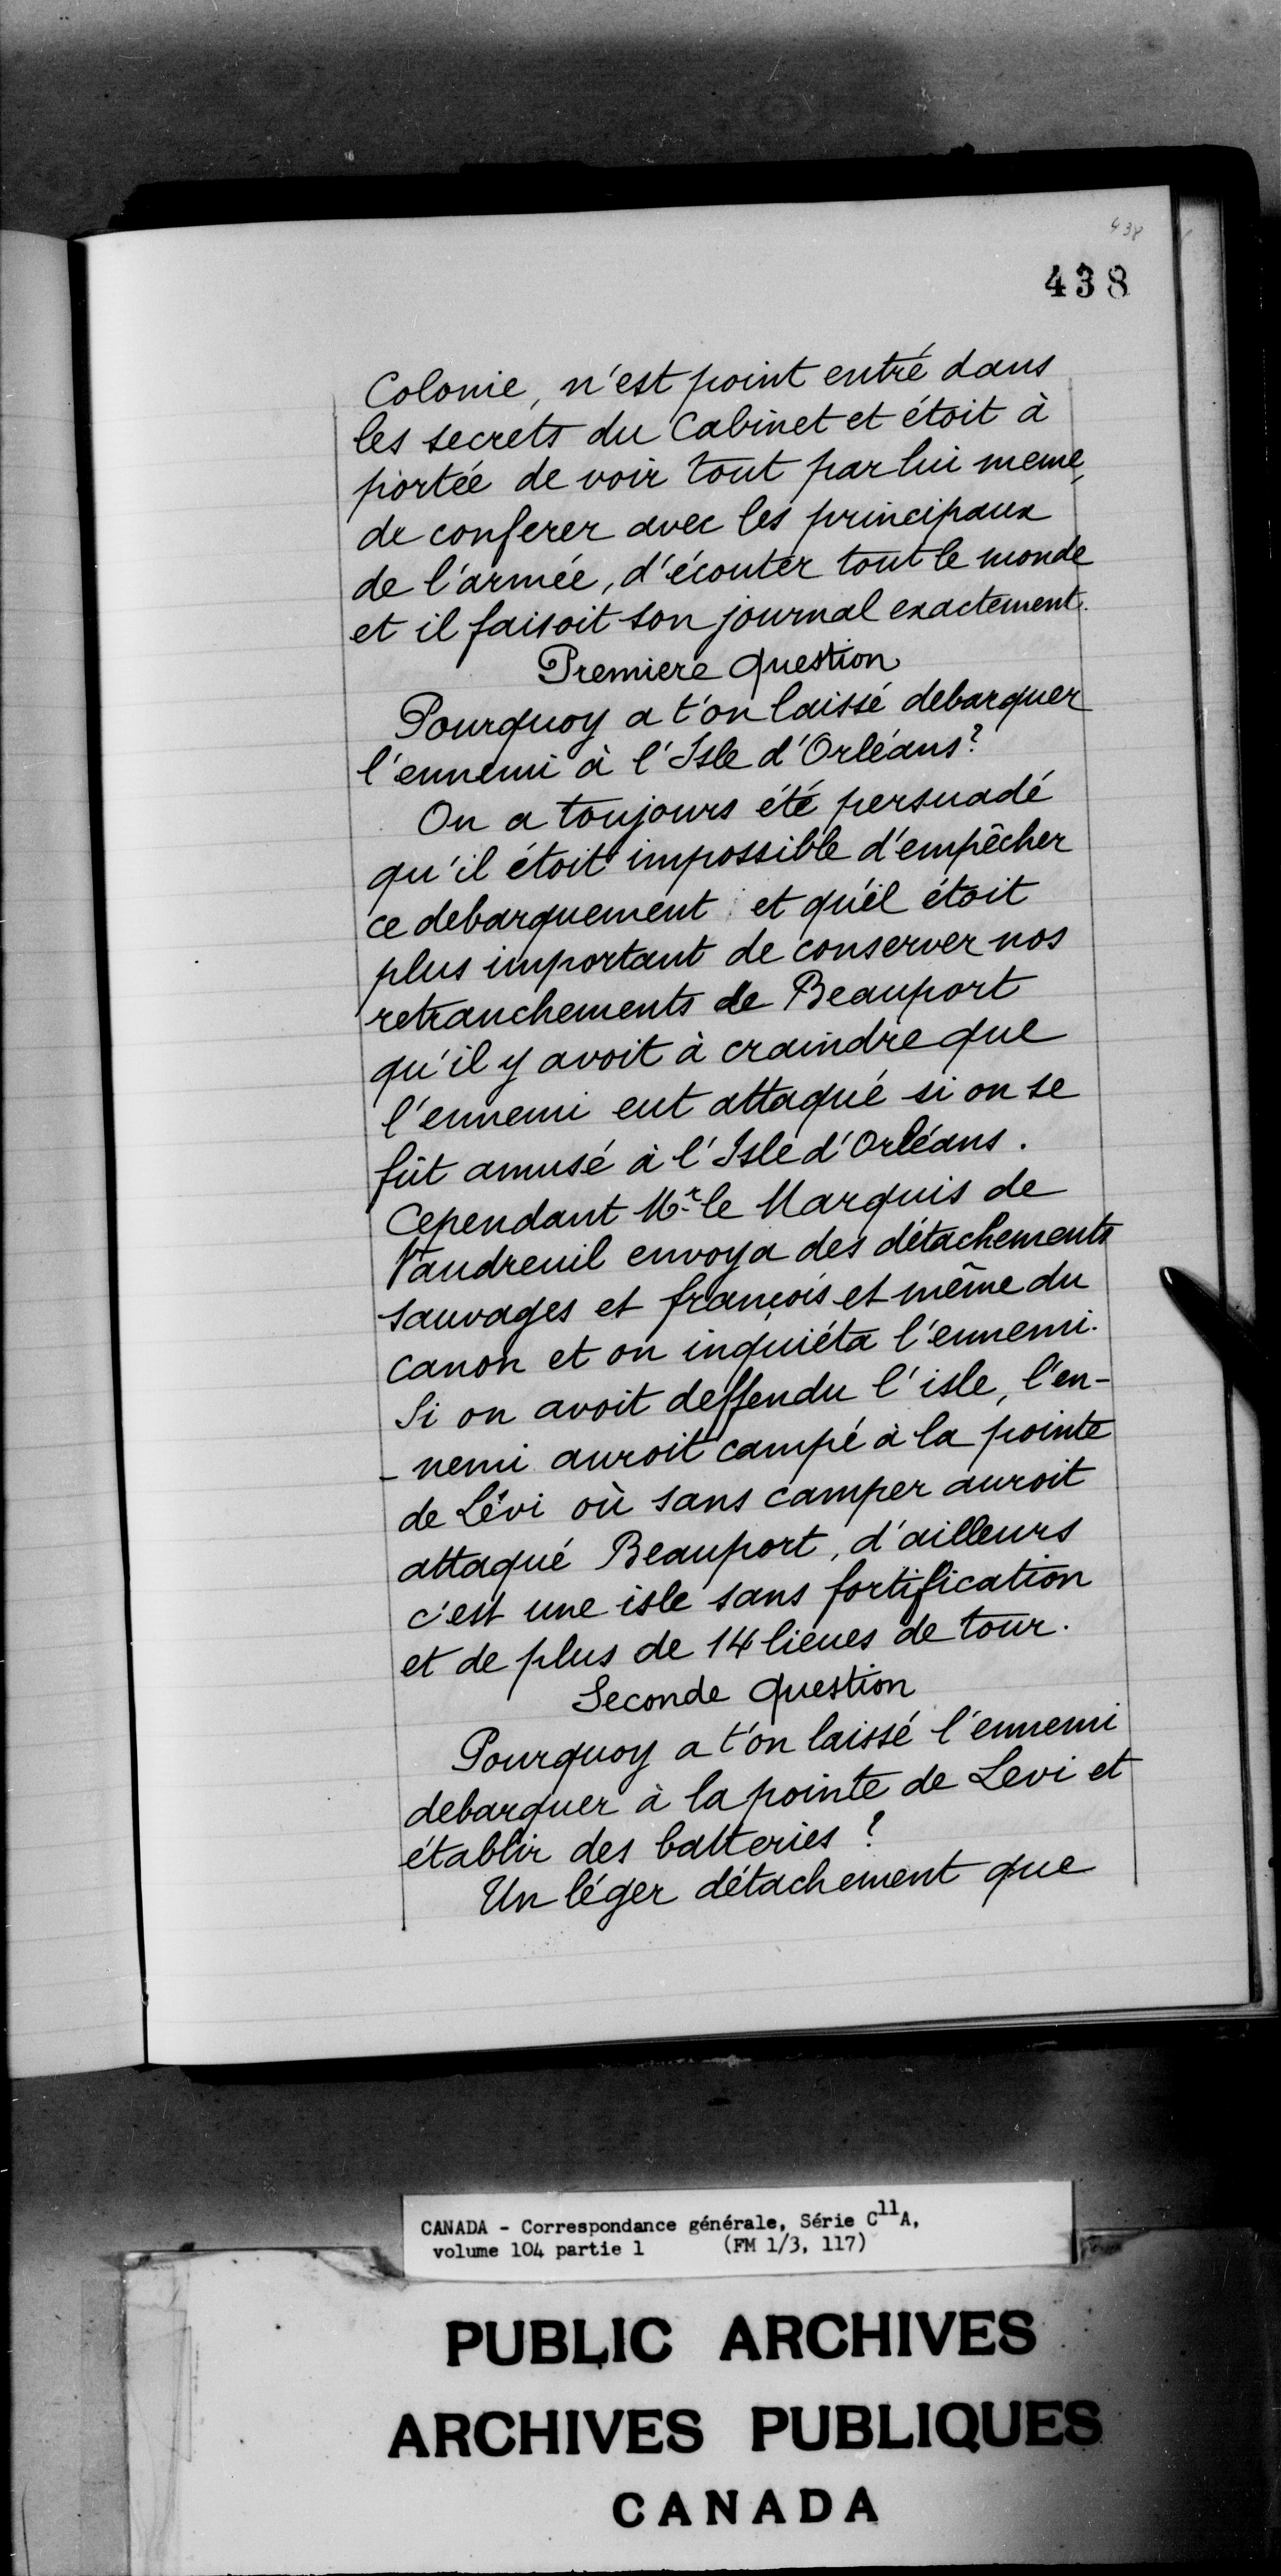 438
438
Colonie, n'est point entré dans
les secrets du Cabinet et étoit à
portée de voir tout par lui meme,
de conferer avec les principaux
de l'armée, d'écouter tout le monde
et il faisoit son journal exactement.
Premiere question
Pourquoy a t'on laissé debarquer
l'ennemi à l'Isle d'Orléans?
On a toujours été persuadé
qu'il étoit impossible d'empêcher
ce debarquement et qu'il étoit
plus important de conserver nos
retranchements de Beauport
qu'il y avoit à craindre que
l'ennemi eut attaqué si on se
fût amusé à l'Isle d'Orléans.
Cependant Mr. le Marquis de
Vaudreuil envoya des détachements
sauvages et françois et même du
canon et on inquiéta l'ennemi.
Si on avoit deffendu l'isle, l'en-
-nemi auroit campé à la pointe
de Lévi où sans camper auroit
attaqué Beauport, d'ailleurs
c'est une isle sans fortification
et de plus de 14 lieues de tour.
Seconde question
Pourquoy a t'on laissé l'ennemi
debarquer à la pointe de Levi et
établir des batteries?
Un léger détachement que
CANADA - Correspondance générale, Série C11A,
volume 104 partie 1 (FM 1/3, 117)
PUBLIC ARCHIVES
ARCHIVES PUBLIQUES
CANADA